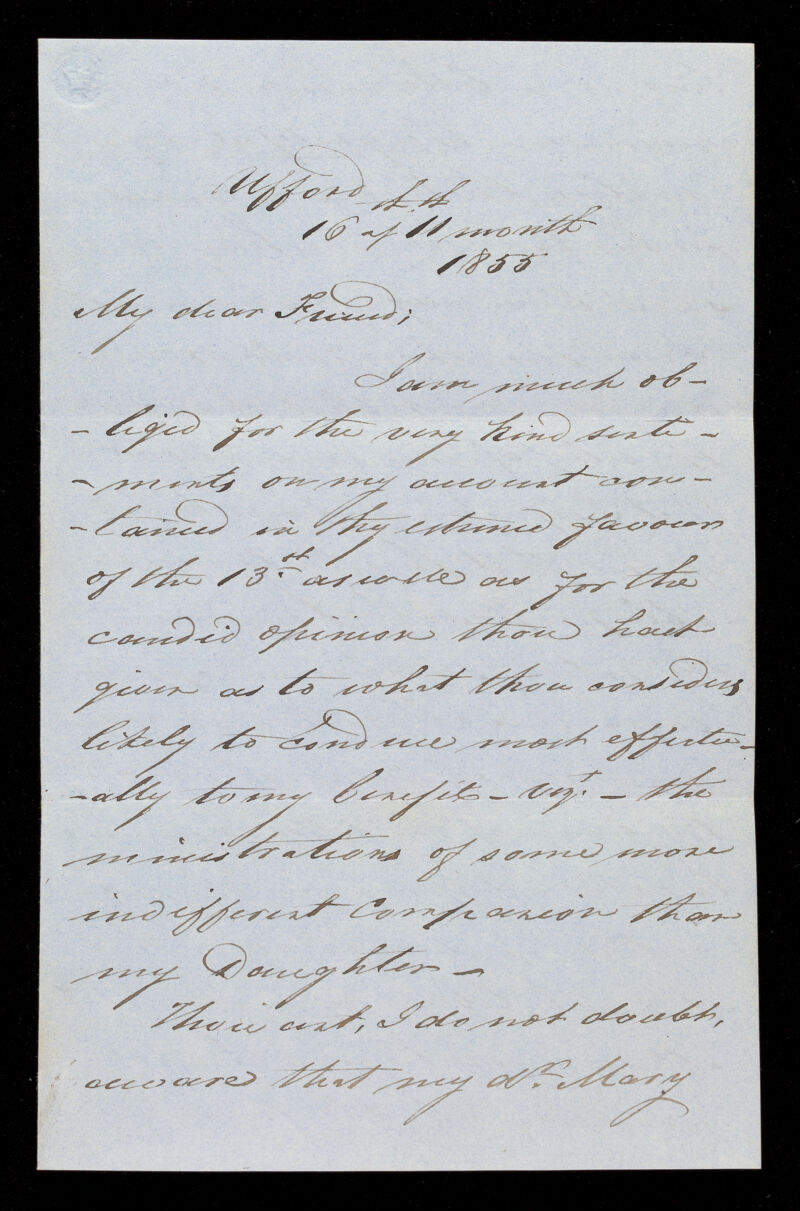 Ufford
16th of 11th month
1855
My dear Friend;
I am much ob-
-liged for the very kind senti-
-ments on my account con-
-tained in thy esteemed favour
of the 13.st as well as for the
candid opinion thou hast
given as to what thou considers
likely to conduce most effectu-
-ally to my benefit - vizt. - the
ministrations of some more
indifferent Companion than
my Daughter -
Thou art, I do not doubt,
aware that my dr. Mary